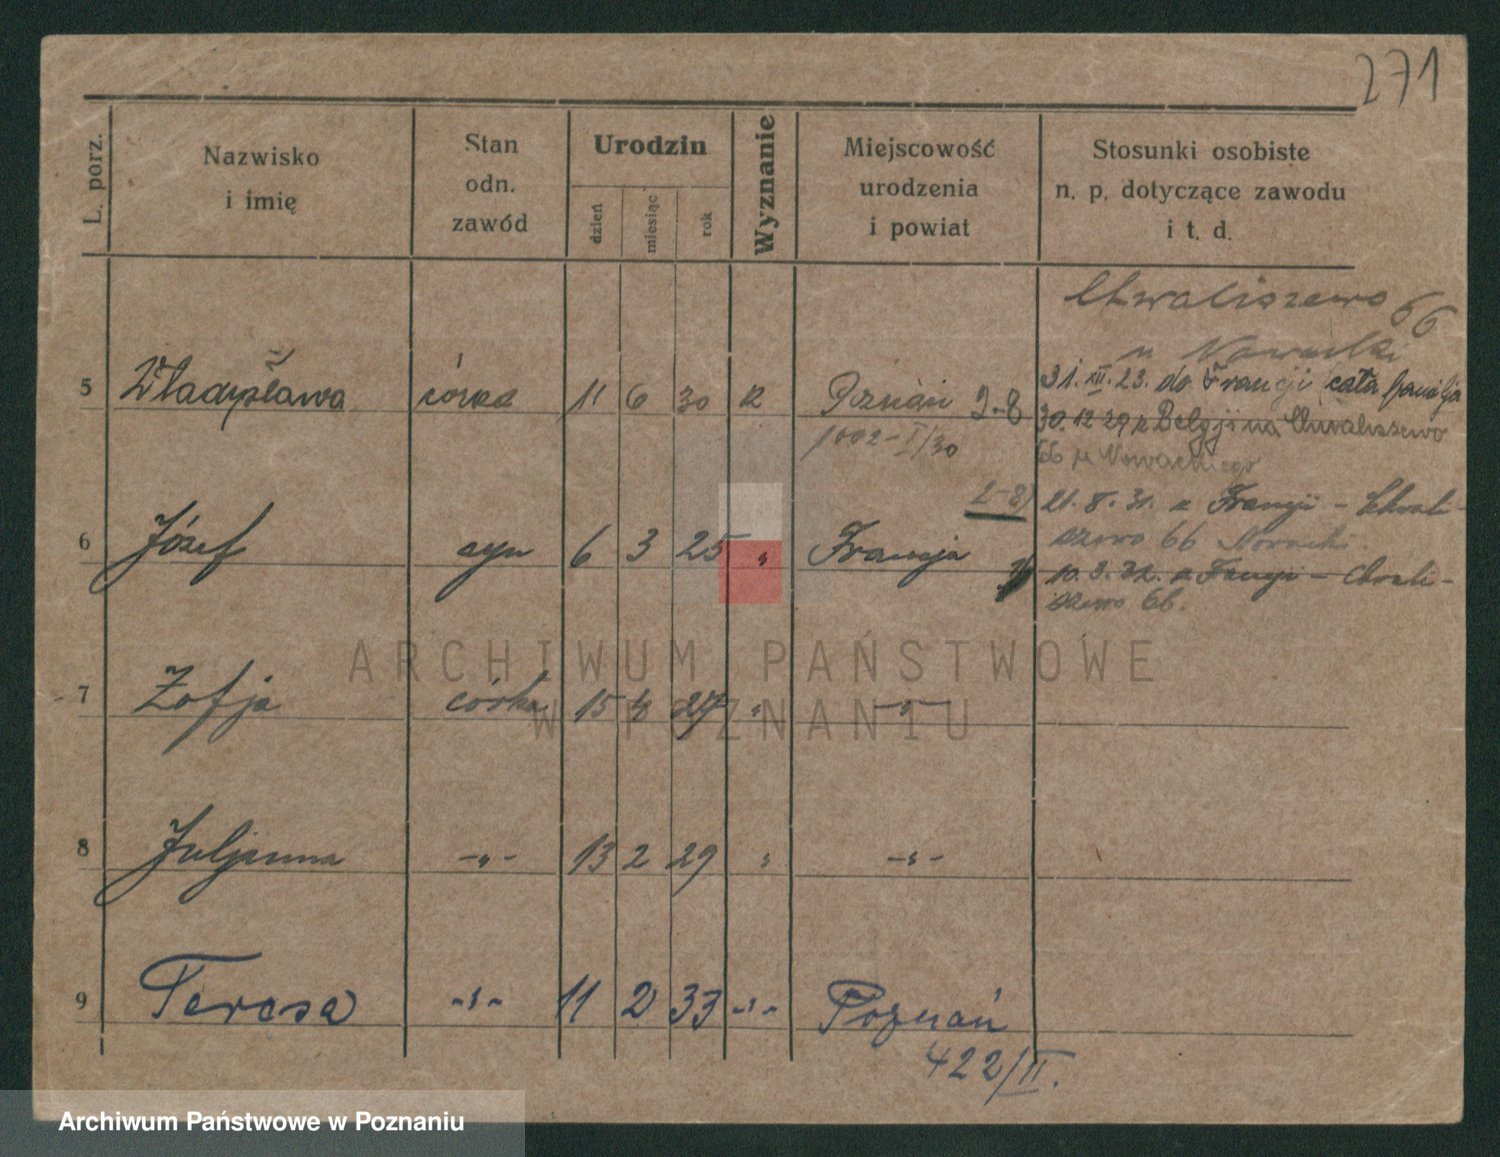 271
L. porz.
Nazwisko
i imię
Stan
odn.
zawód
Urodzin
dzień
miesiąc
rok
Wyznanie
Miejscowość
urodzenia
i powiat
Stosunki osobiste
n. p. dotyczące zawodu
i t. d.
Chwaliszewo 66
u Nowacki
5 Władysława córka 11 6 30 R Poznań 2-8
1002-I/30
31. XII. 23. do Francji cała familja
30.12 29 z Belgji na Chwaliszewo
66 u Nowackiego
6 Józef syn 6 3 25 " Francja
2-8
21. 8. 31. z Francji - Chwali-
szewo 66 Nowacki.
10. 3. 32. z Francji - Chwali-
szewo 66.
7 Zofja córka 15 4 27 " -"-
8 Juljanna -"- 13 2 29 " -"-
9 Teresa -"- 11 2 33 -"- Poznań
422/II.
ARCHIWUM PAŃSTWOWE
W POZNANIU
Archiwum Państwowe w Poznaniu